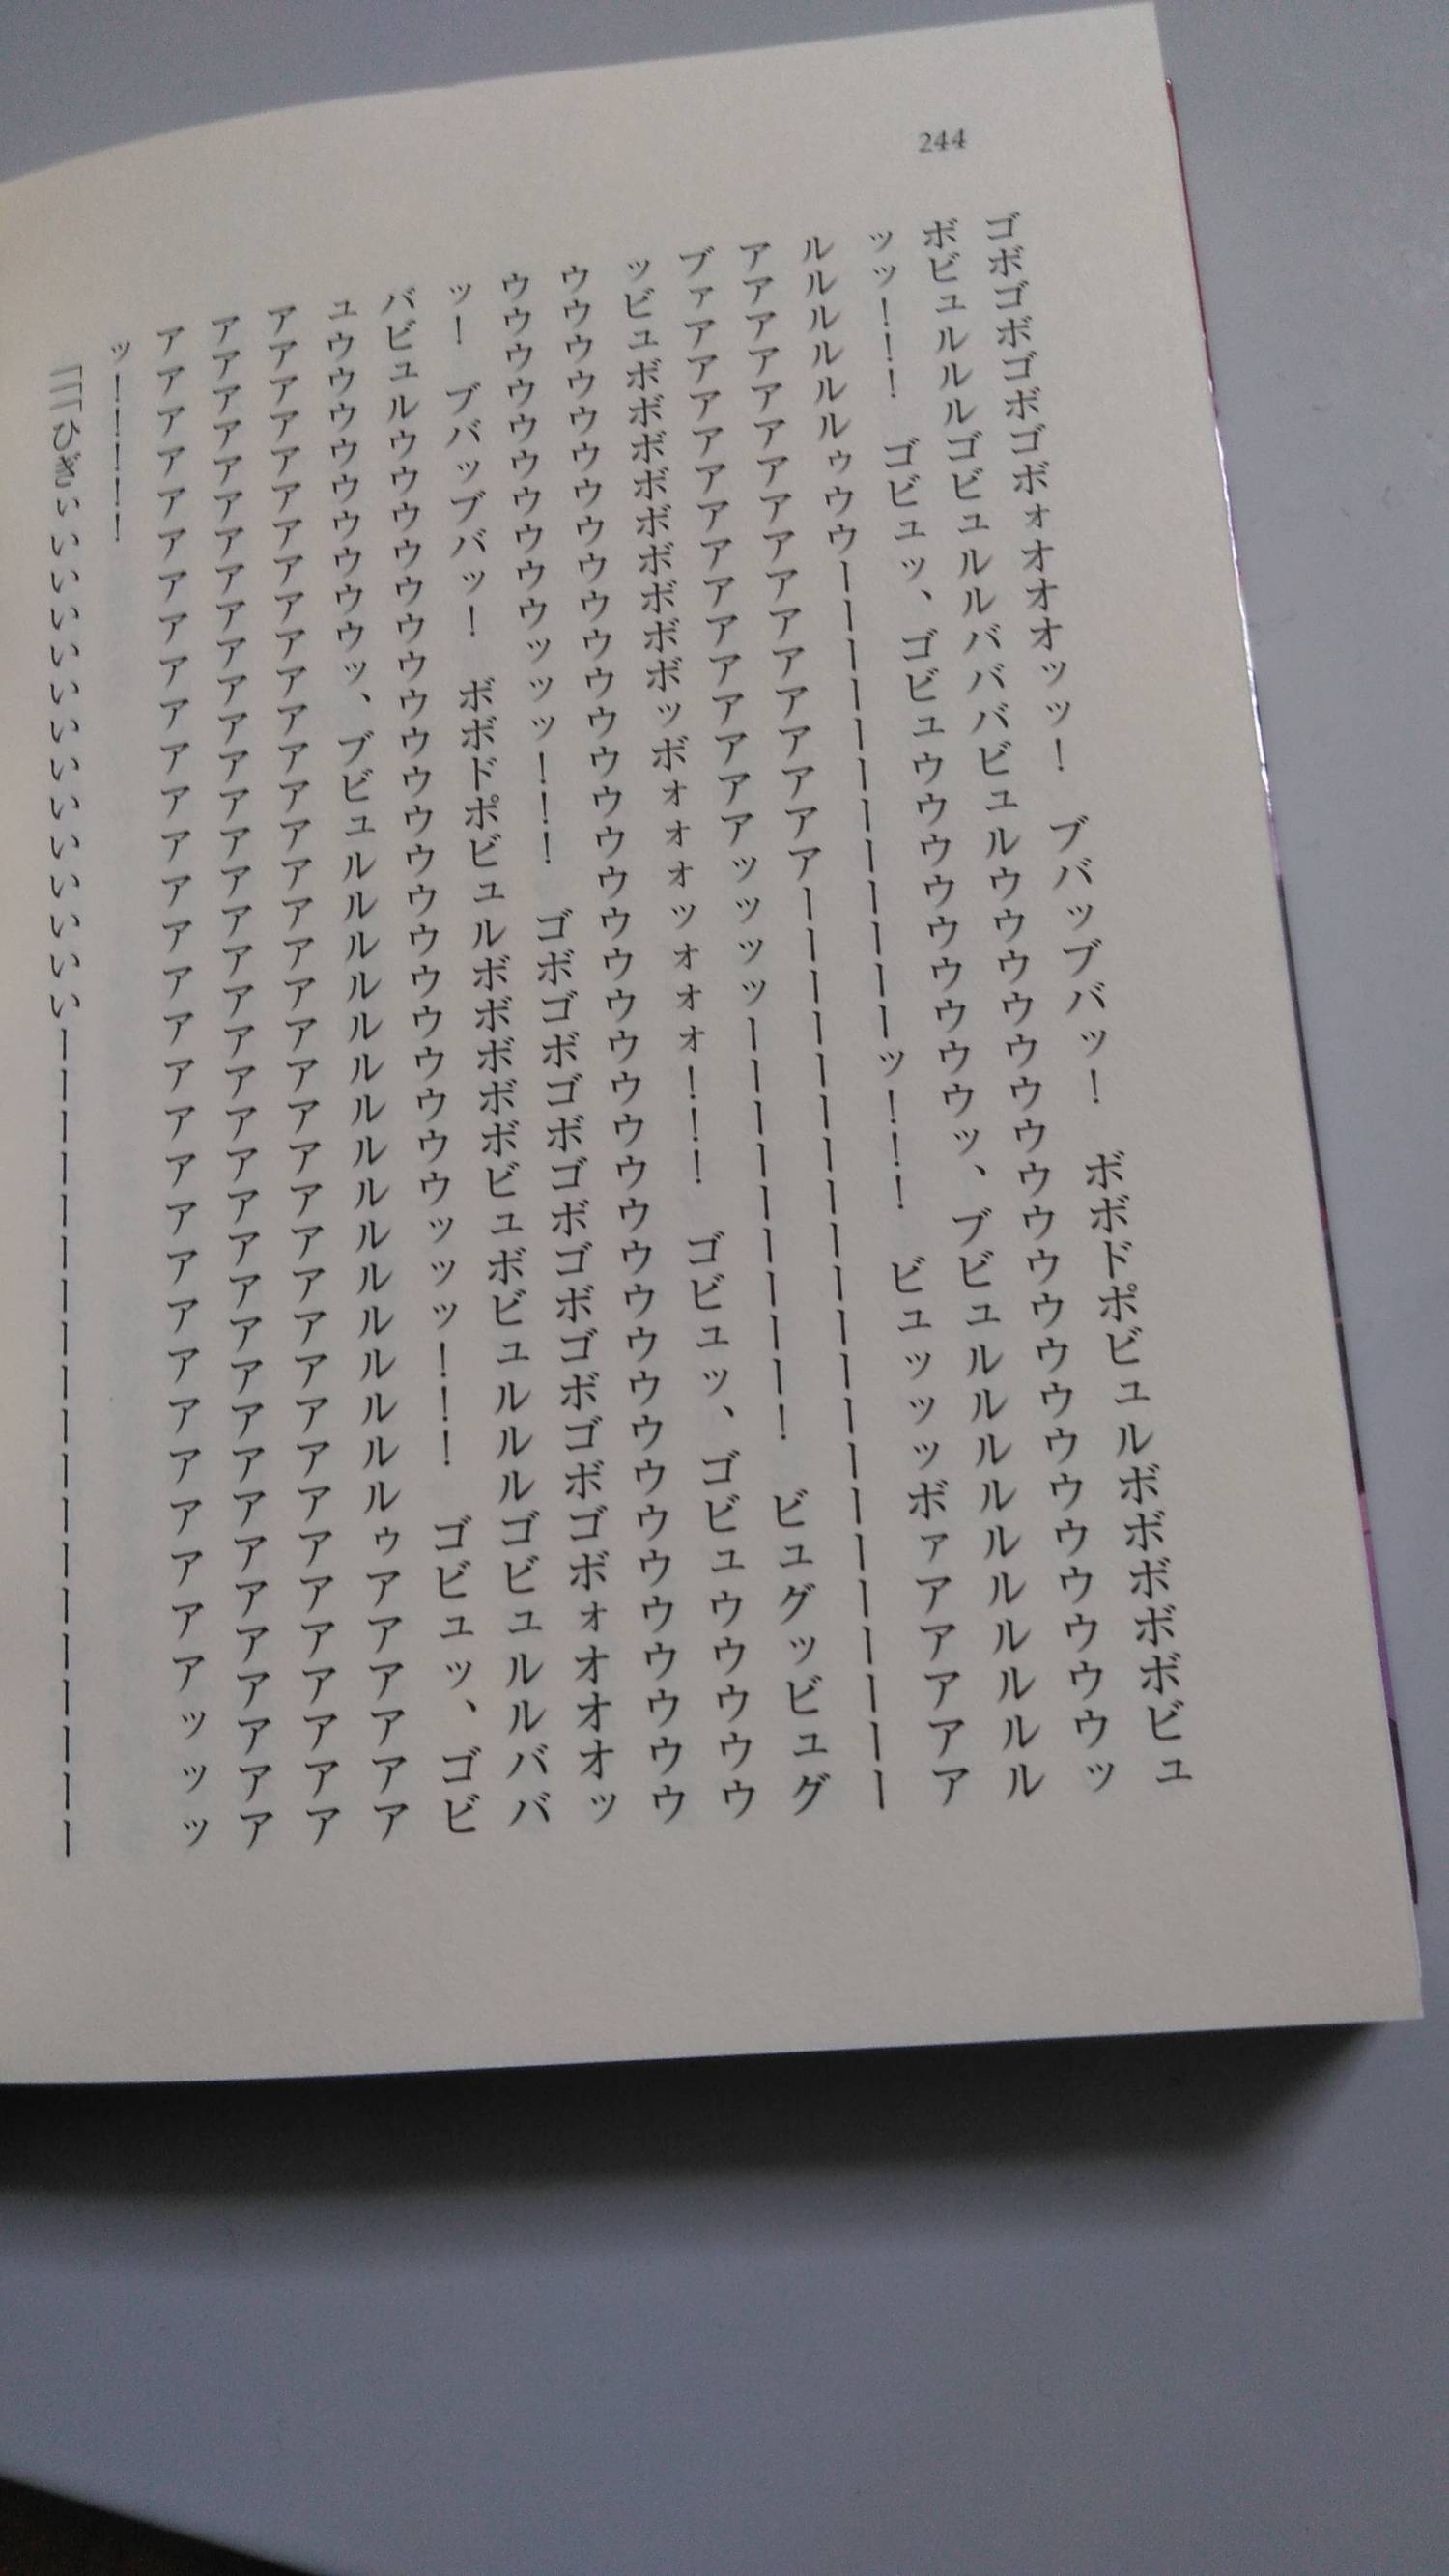 244
ゴボゴボゴボゴボォオオオッッ！　ブバッブバッ！　ボボドポビュルボボボボボビュ
ボビュルルルゴビュルルバババビュルウウウウウウウウウウウウウウウウウウウウッ
ッッ！！！　ゴビュッ、ゴビュウウウウウウウウウッ、ブビュルルルルルルルルルル
ルルルルルルゥウウーーーーーーーーーーーーッ！！！　ビュッッッボァアアアアア
アアアアアアアアアアアアアアアアアーーーーーーーーーーーーーーーーーーーーー
ブァアアアアアアアアアアアアアアッッッッーーーーーーーーー！　ビュグッビュグ
ッビュボボボボボボボボボッボォォォッォォォ！！！　ゴビュッ、ゴビュウウウウウ
ウウウウウウウウウウウウウウウウウウウウウウウウウウウウウウウウウウウウウウ
ウウウウウウウウウウッッッ！！！　ゴボゴボゴボゴボゴボゴボゴボゴボォオオオッ
ッ！　ブバッブバッ！　ボボドポビュルボボボボボビュボビュルルルゴビュルルババ
バビュルウウウウウウウウウウウウウウウウウウウウッッッ！！！　ゴビュッ、ゴビ
ュウウウウウウウウウッ、ブビュルルルルルルルルルルルルルルルルゥアアアアアア
アアアアアアアアアアアアアアアアアアアアアアアアアアアアアアアアアアアアアア
アアアアアアアアアアアアアアアアアアアアアアアアアアアアアアアアアアアアアア
アアアアアアアアアアアアアアアアアアアアアアアアアアアアアアアアアアアッッッ
ッ！！！！！
「「「ひぎぃいいいいいいいいいいいいいーーーーーーーーーーーーーーーーーーーーー